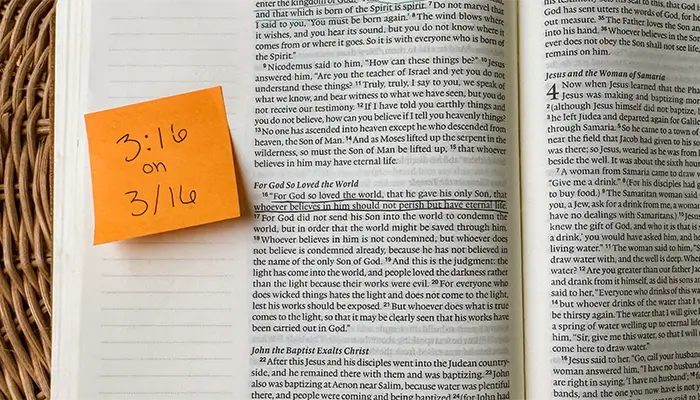 3:16
on
3/16
enter the kingdom of God.
and that which is born of the Spirit is spirit. 7 Do not marvel that
I said to you, ‘You must be born again.’ 8 The wind blows where
it wishes, and you hear its sound, but you do not know where it
comes from or where it goes. So it is with everyone who is born of
the Spirit.”
9 Nicodemus said to him, “How can these things be?” 10 Jesus
answered him, “Are you the teacher of Israel and yet you do not
understand these things? 11 Truly, truly, I say to you, we speak of
what we know, and bear witness to what we have seen, but you do
not receive our testimony. 12 If I have told you earthly things and
you do not believe, how can you believe if I tell you heavenly things?
13 No one has ascended into heaven except he who descended from
heaven, the Son of Man. 14 And as Moses lifted up the serpent in the
wilderness, so must the Son of Man be lifted up, 15 that whoever
believes in him may have eternal life.
For God So Loved the World
16 “For God so loved the world, that he gave his only Son, that
whoever believes in him should not perish but have eternal life.
17 For God did not send his Son into the world to condemn the
world, but in order that the world might be saved through him.
18 Whoever believes in him is not condemned, but whoever does
not believe is condemned already, because he has not believed in
the name of the only Son of God. 19 And this is the judgment: the
light has come into the world, and people loved the darkness rather
than the light because their works were evil. 20 For everyone who
does wicked things hates the light and does not come to the light,
lest his works should be exposed. 21 But whoever does what is true
comes to the light, so that it may be clearly seen that his works have
been carried out in God.”
John the Baptist Exalts Christ
22 After this Jesus and his disciples went into the Judean country-
side, and he remained there with them and was baptizing. 23 John
also was baptizing at Aenon near Salim, because water was plentiful
there, and people were coming and being baptized 24 (for John had
God has sent utters the words of God, for
out measure. 35 The Father loves the Son an
into his hand. 36 Whoever believes in the S
ever does not obey the Son shall not see li
remains on him.
Jesus and the Woman of Samaria
4 Now when Jesus learned that the Pha
Jesus was making and baptizing mor
2 (although Jesus himself did not baptize, b
3 he left Judea and departed again for Galile
through Samaria. 5 So he came to a town o
near the field that Jacob had given his so
was there; so Jesus, wearied as he was from
beside the well. It was about the sixth hour
7 A woman from Samaria came to draw w
“Give me a drink.” 8 (For his disciples had
to buy food.) 9 The Samaritan woman said
you, a Jew, ask for a drink from me, a wom
have no dealings with Samaritans.) 10 Jesus
knew the gift of God, and who it is that is s
a drink,’ you would have asked him, and he
living water.” 11 The woman said to him, “S
draw water with, and the well is deep. Wher
water? 12 Are you greater than our father J
and drank from it himself, as did his sons an
said to her, “Everyone who drinks of this wa
14 but whoever drinks of the water that I
be thirsty again. The water that I will give h
a spring of water welling up to eternal life
him, “Sir, give me this water, so that I w
come here to draw water.”
16 Jesus said to her, “Go, call your husban
woman answered him, “I have no husband.”
are right in saying, ‘I have no husband’; 18 f
bands, and the one you now have is not y